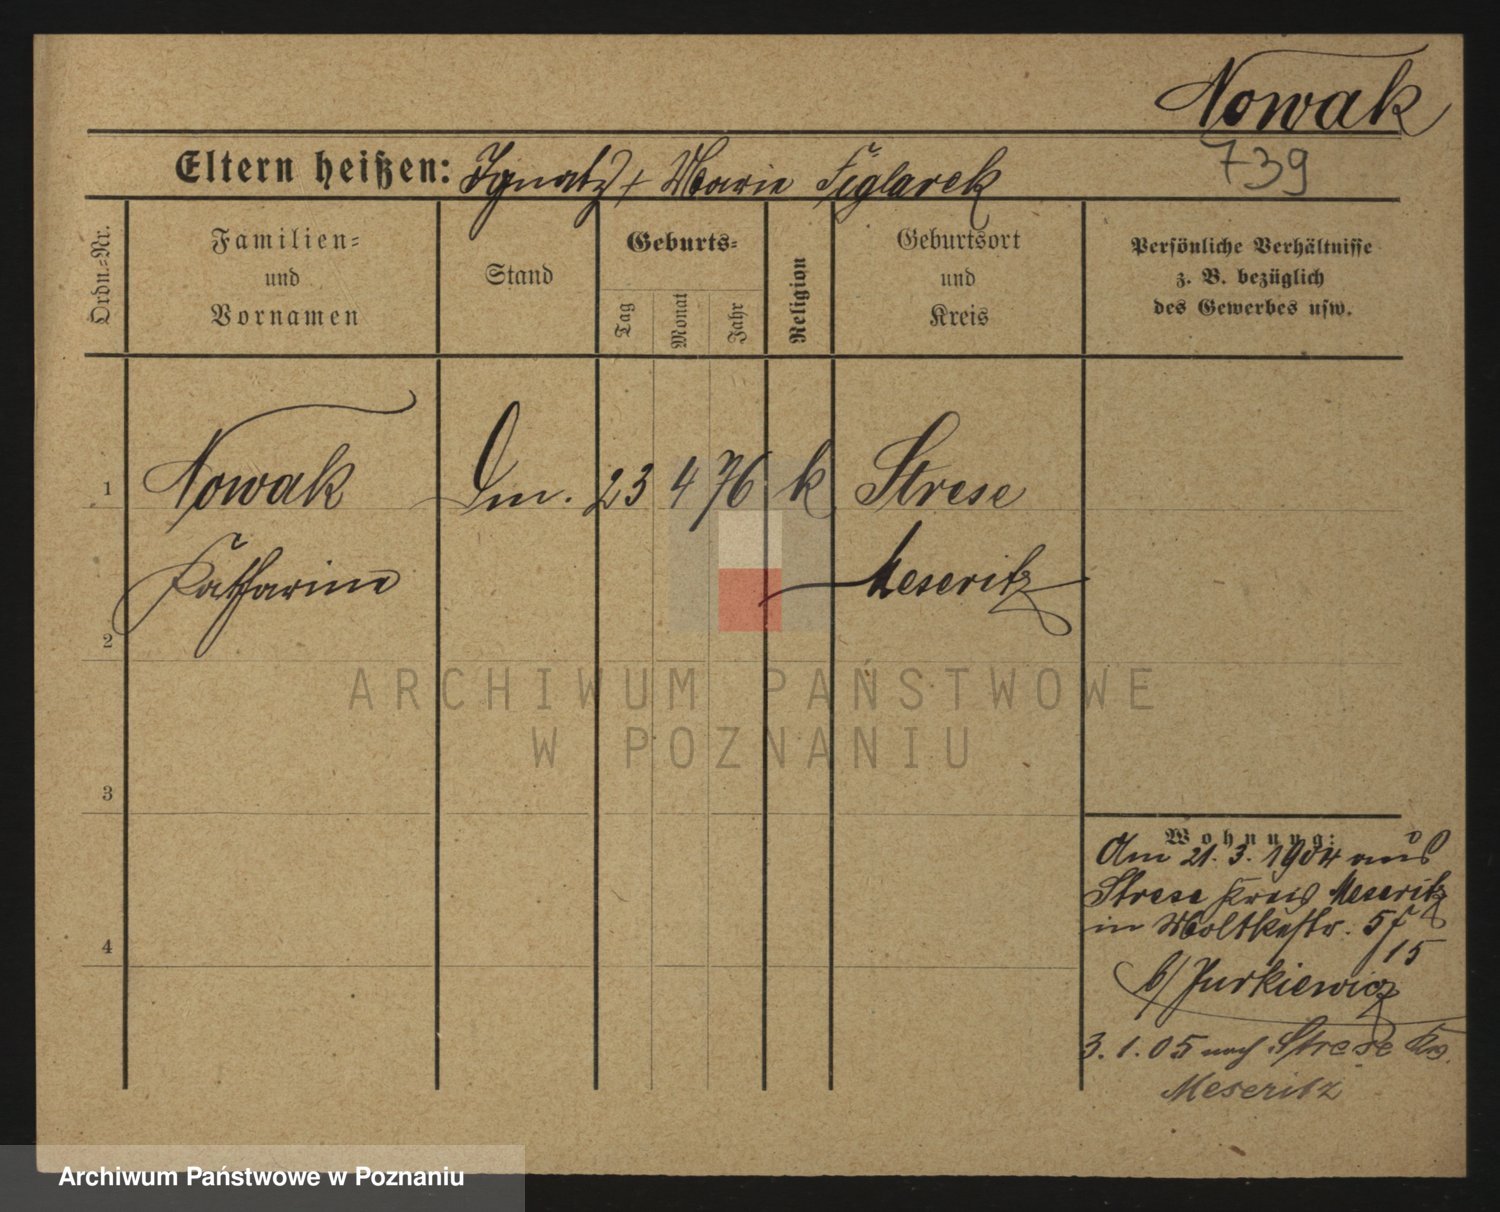 Nowak
739
Eltern heißen: Ignatz + Marie Figlarek
Ordn.-Nr.
Familien-
und
Vornamen
Stand
Geburts-
Tag
Monat
Jahr
Religion
Geburtsort
und
Kreis
Persönliche Verhältnisse
z. B. bezüglich
des Gewerbes usw.
1
Nowak
23 4 76 k Strese
Katharine
Meseritz
2
ARCHIWUM PAŃSTWOWE
W POZNANIU
3
Wohnung:
Am 21. 3. 1904 aus
Strese Kreis Meseritz
in Moltkestr.
15
b/ Jurkiewicz
4
3. 1. 05 nach Strese Krs.
Meseritz
Archiwum Państwowe w Poznaniu